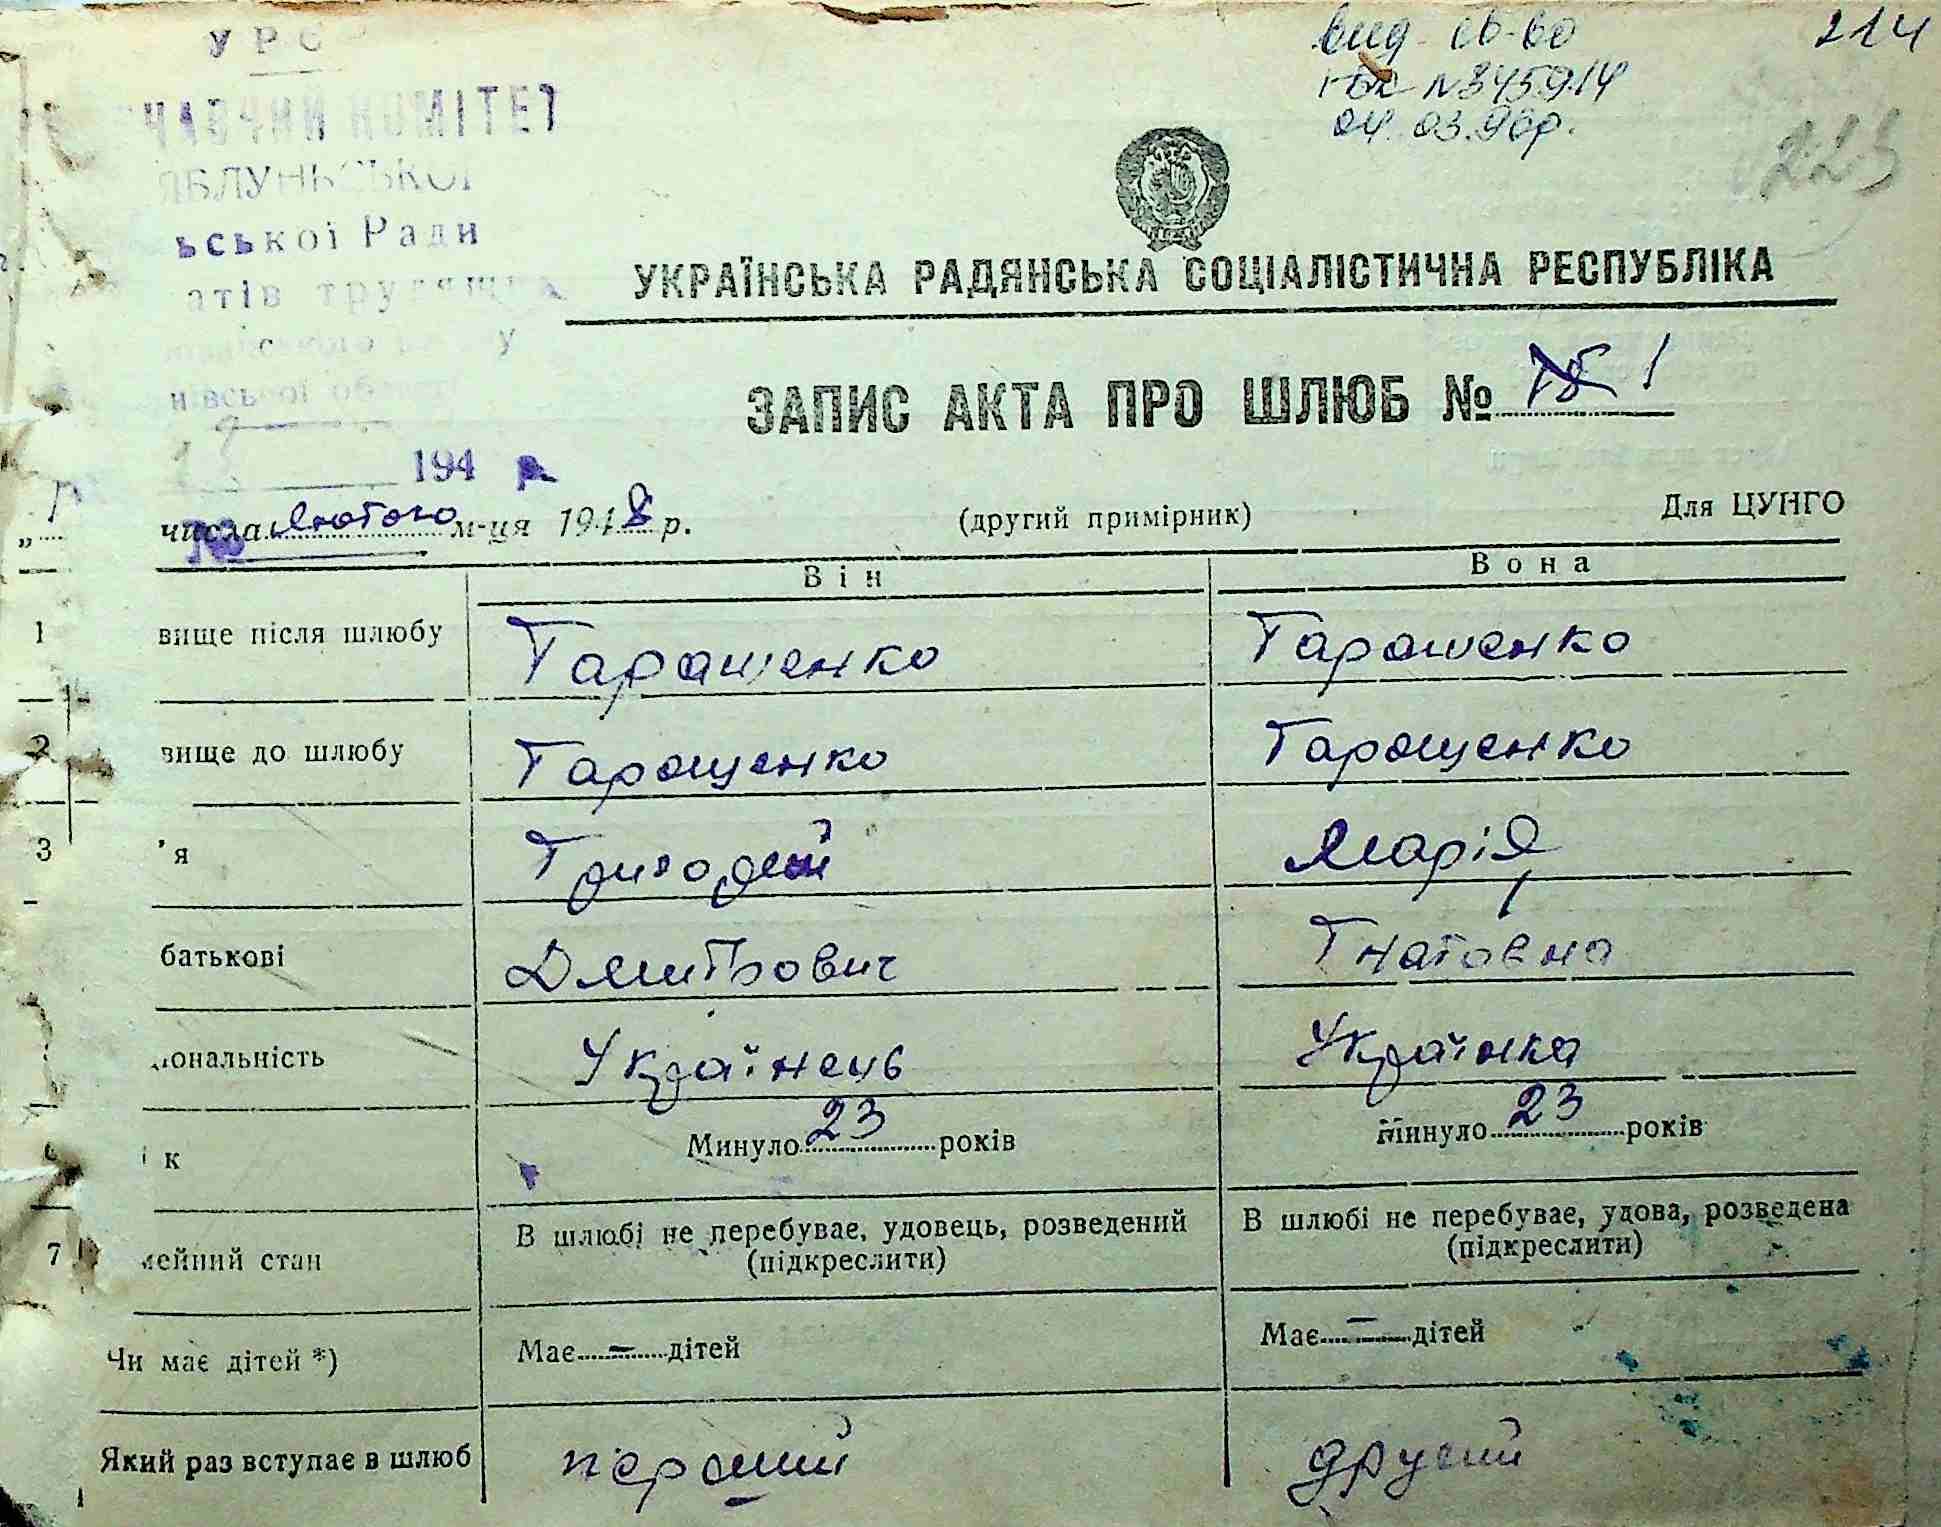 УРС
ЧАВЧИЙ КОМІТЕТ
ЯБЛУНЬСЬКОЇ
ьської Ради
атів трудящих
нівської області
194 р.
№
вид. св-во
№ 345914
04.03.96р.
214
223
УКРАЇНСЬКА РАДЯНСЬКА СОЦІАЛІСТИЧНА РЕСПУБЛІКА
ЗАПИС АКТА ПРО ШЛЮБ № 1
числа Лютого м-ця 1948 р.
(другий примірник)
Для ЦУНГО
Він Вона
1 вище після шлюбу Таращенко Таращенко
2 вище до шлюбу Таращенко Таращенко
3 'я Григорій Марія
батькові Дмитрович Гнатовна
іональність Українець Українка
ік Минуло 23 років Минуло 23 років
7 мейний стан В шлюбі не перебуває, удовець, розведений (підкреслити) В шлюбі не перебуває, удова, розведена (підкреслити)
Чи має дітей *) Має – дітей Має – дітей
Який раз вступає в шлюб перший другий